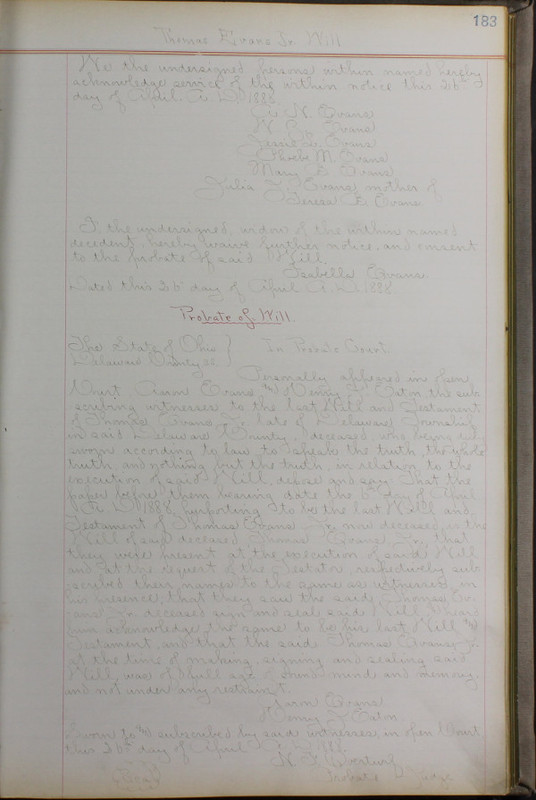 183
Thomas Evans Jr. Will
We the undersigned persons within named hereby
acknowledge service of the within notice this 26th
day of April A.D. 1888.
N. Evans
W. Evans
Jessie Evans
Phoebe M. Evans
Mary E. Evans
Julia Evans mother of
Teresa E. Evans
I the undersigned, widow of the within named
decedent, hereby waive further notice, and consent
to the probate of said Will.
Isabella Evans.
Dated this 26th day of April A.D. 1888.
Probate of Will.
The State of Ohio }
Delaware County ss. } In Probate Court
Personally appeared in open
Court, Evans & Henry Eaton the sub
scribing witnesses to the last Will and Testament
of Thomas Evans Jr. late of Delaware Township
in said Delaware County, deceased, who being duly
sworn according to law to speak the truth, the whole
truth and nothing but the truth, in relation to the
execution of said Will, depose and say: That the
paper before them bearing date the day of April
A.D. 1888, purporting to be the last Will and
Testament of Thomas Evans Jr. now deceased, is the
Will of said deceased Thomas Evans Jr., that
they were present at the execution of said Will
and at the request of the Testator, respectively sub
scribed their names to the same as witnesses in
his presence, that they saw the said Thomas Ev-
ans Jr. deceased sign and seal said Will & heard
him acknowledge the same to be his last Will &
Testament, and that the said Thomas Evans Jr.
at the time of making, signing and sealing said
Will, was of full age & sound mind and memory
and not under any restraint.
Evans
Henry Eaton
Sworn to & subscribed by said witnesses, in open Court
this 26th day of April A.D. 1888.
N. F. Overturf
Seal Probate Judge